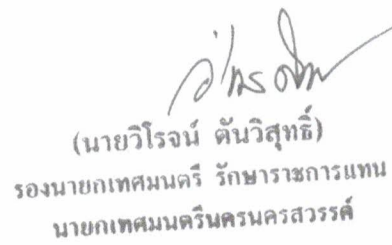 (นายวิโรจน์ ตันวิสุทธิ์)
รองนายกเทศมนตรี รักษาราชการแทน
นายกเทศมนตรีนครนครสวรรค์